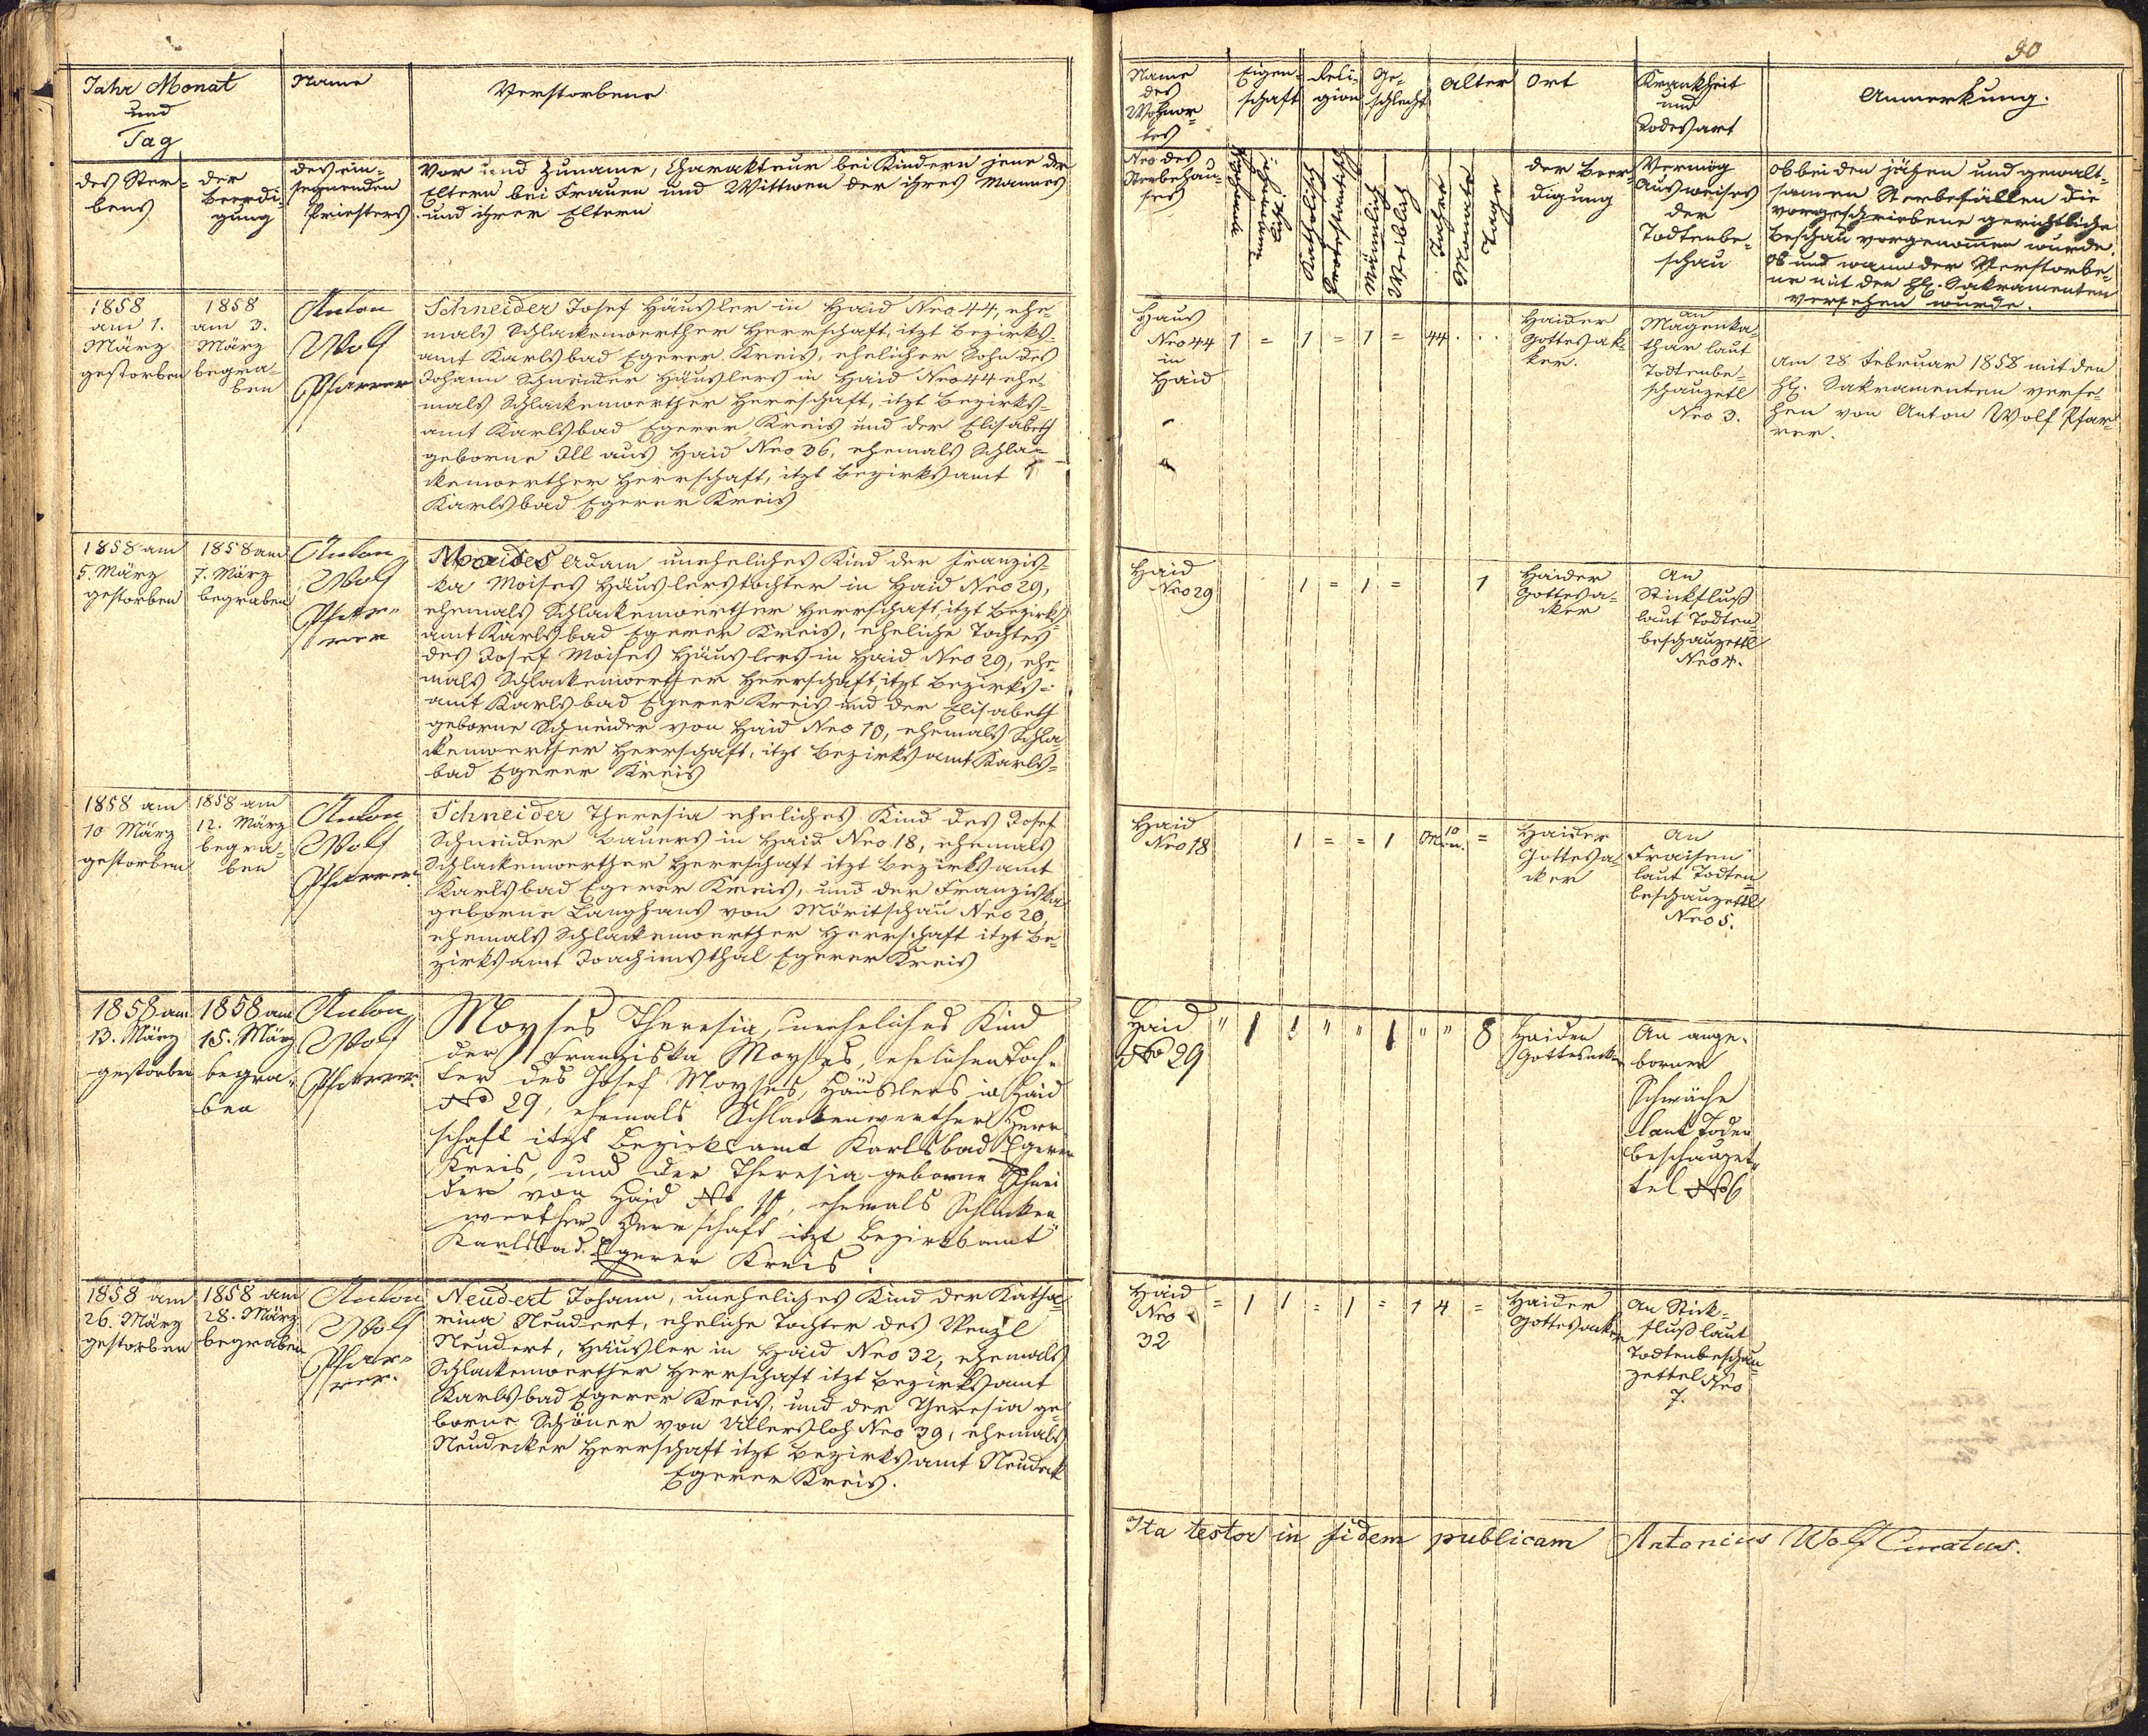 Jahr Monat
und
Tag
Name
Verstorbene
des Ster-
bens
der
Beerdi-
gung
des ein-
segnenden
Priesters
Vor und Zuname, Charakteur bei Kindern jene der
Eltern bei Frauen und Wittwen der ihres Mannes
und ihrer Eltern
1858
am 1.
März
gestorben
1858
am 3.
März
begra-
ben
Anton
Wolf
Pfarrer
Schneider Josef Häusler in Haid Nro 44, ehe-
mals Schlackenwerther Herrschaft, itzt Bezirks-
amt Karlsbad Egerer Kreis, ehelicher Sohn des
Johann Schneider Häuslers in Haid Nro 44 ehe-
mals Schlackenwerther Herrschaft, itzt Bezirks-
amt Karlsbad Egerer Kreis und der Elisabeth
geborne Ill aus Haid Nro 36, ehemals Schla-
ckenwerther Herrschaft, itzt Bezirksamt
Karlsbad Egerer Kreis
1858 am
5. März
gestorben
1858 am
7. März
begraben
Anton
Wolf
Pfar-
rer
Adam uneheliches Kind der Franzis-
ka Moises Häuslerstochter in Haid Nro 29,
ehemals Schlackenwerther Herrschaft itzt Bezirks-
amt Karlsbad Egerer Kreis, eheliche Tochter
des Josef Moises Häuslers in Haid Nro 29, ehe-
mals Schlackenwerther Herrschaft, itzt Bezirks-
amt Karlsbad Egerer Kreis und der Elisabeth
geborne Schneider von Haid Nro 10, ehemals Schla-
ckenwerther Herrschaft, itzt Bezirksamt Karls-
bad Egerer Kreis
1858 am
10 März
gestorben
1858 am
12. März
begra-
ben
Anton
Wolf
Pfarrer.
Schneider Theresia eheliches Kind des Josef
Schneider Bauers in Haid Nro 18, ehemals
Schlackenwerther Herrschaft itzt Bezirksamt
Karlsbad Egerer Kreis, und der Franziska
geborne Langhans von Möritschau Nro 20,
ehemals Schlackenwerther Herrschaft itzt Be-
zirksamt Joachimsthal Egerer Kreis
1858 am
13. März
gestorben
1858 am
15. März
begra-
ben
Anton
Wolf
Pfarrer.
Moyses Theresia, uneheliches Kind
der Franziska Moyses, ehelichen Toch-
ter des Josef Moyses, Häuslers in Haid
No 29, ehemals Schlackenwerther Herr
schaft itzt Bezirksamt Karlsbad Egerer
Kreis, und der Theresia geborne Schnei
der von Haid No, ehemals Schlacken
werther Herrschaft itzt Bezirksamt
Karlsbad. Egerer Kreis.
1858 am
26. März
gestorben
1858 am
28. März
begraben
Anton
Wolf
Pfar-
rer.
Neudert Johann, uneheliches Kind der Katha-
rina Neudert, eheliche Tochter des Wenzl
Neudert, Häusler in Haid Nro 32, ehemals
Schlackenwerther Herrschaft itzt Bezirksamt
Karlsbad Egerer Kreis, und der Theresia ge-
borne Schöner von Ullersloh Nro 39, ehemals
Neudecker Herrschaft itzt Bezirksamt Neudek
Egerer Kreis.
90
Name
des
Wohnor-
tes
Eigen-
schaft
Reli-
gion
Ge-
schlecht
Alter
Ort
Krankheit
und
Todesart
Anmerkung.
Nro des
Sterbehau-
ses
Katholisch
Protestantisch
Männlich
Weiblich
Jahre
Monate
Tage
der Beer-
digung
Vermög
Ausweises
der
Todtenbe-
schau
ob bei den jähen und gewalt-
samen Sterbefällen die
vorgeschriebene gerichtliche
Beschau vorgenommen wurde.
Ob und wann der Verstorbe-
ne mit den hl. Sakramenten
versehen wurde.
Haus
Nro 44
in
Haid
1 = 1 = 1 = 44 . .
Haider
Gottesak-
ker.
an
Magenka-
thar laut
Todtenbe-
schauzetl
Nro 3.
Am 28 Februar 1858 mit den
hl. Sakramenten verse-
hen von Anton Wolf Pfar-
rer.
Haid
Nro 29
1 = 1 = 1
Haider
Gottesa-
cker
An
Stickfluß
laut Todten-
beschauzettl
Nro 4.
Haid
Nro 18
1 = = 1 10 Mon. =
Haider
Gottesa-
cker
An
Fraisen
laut Todten-
beschauzettl
Nro 5.
Haid
No 29
" 1 1 " " 1 " " 8
Haider
Gottesacker
An ange-
borner
Schwäche
laut Toden
beschauzet-
tel No 6
Haid
Nro
32
= 1 1 = 1 = 1 4 =
Haider
Gottesacker
An Stick-
fluß laut
Todtenbeschau-
zettel Nro
7.
Ita testor in fidem publicam Antonius Wolf Curatus.